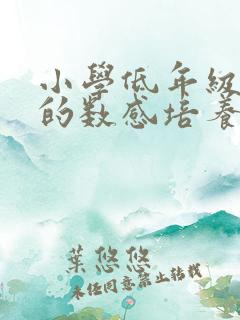 小學低年級
的数感培養
葉悠悠
未经同意禁止转载